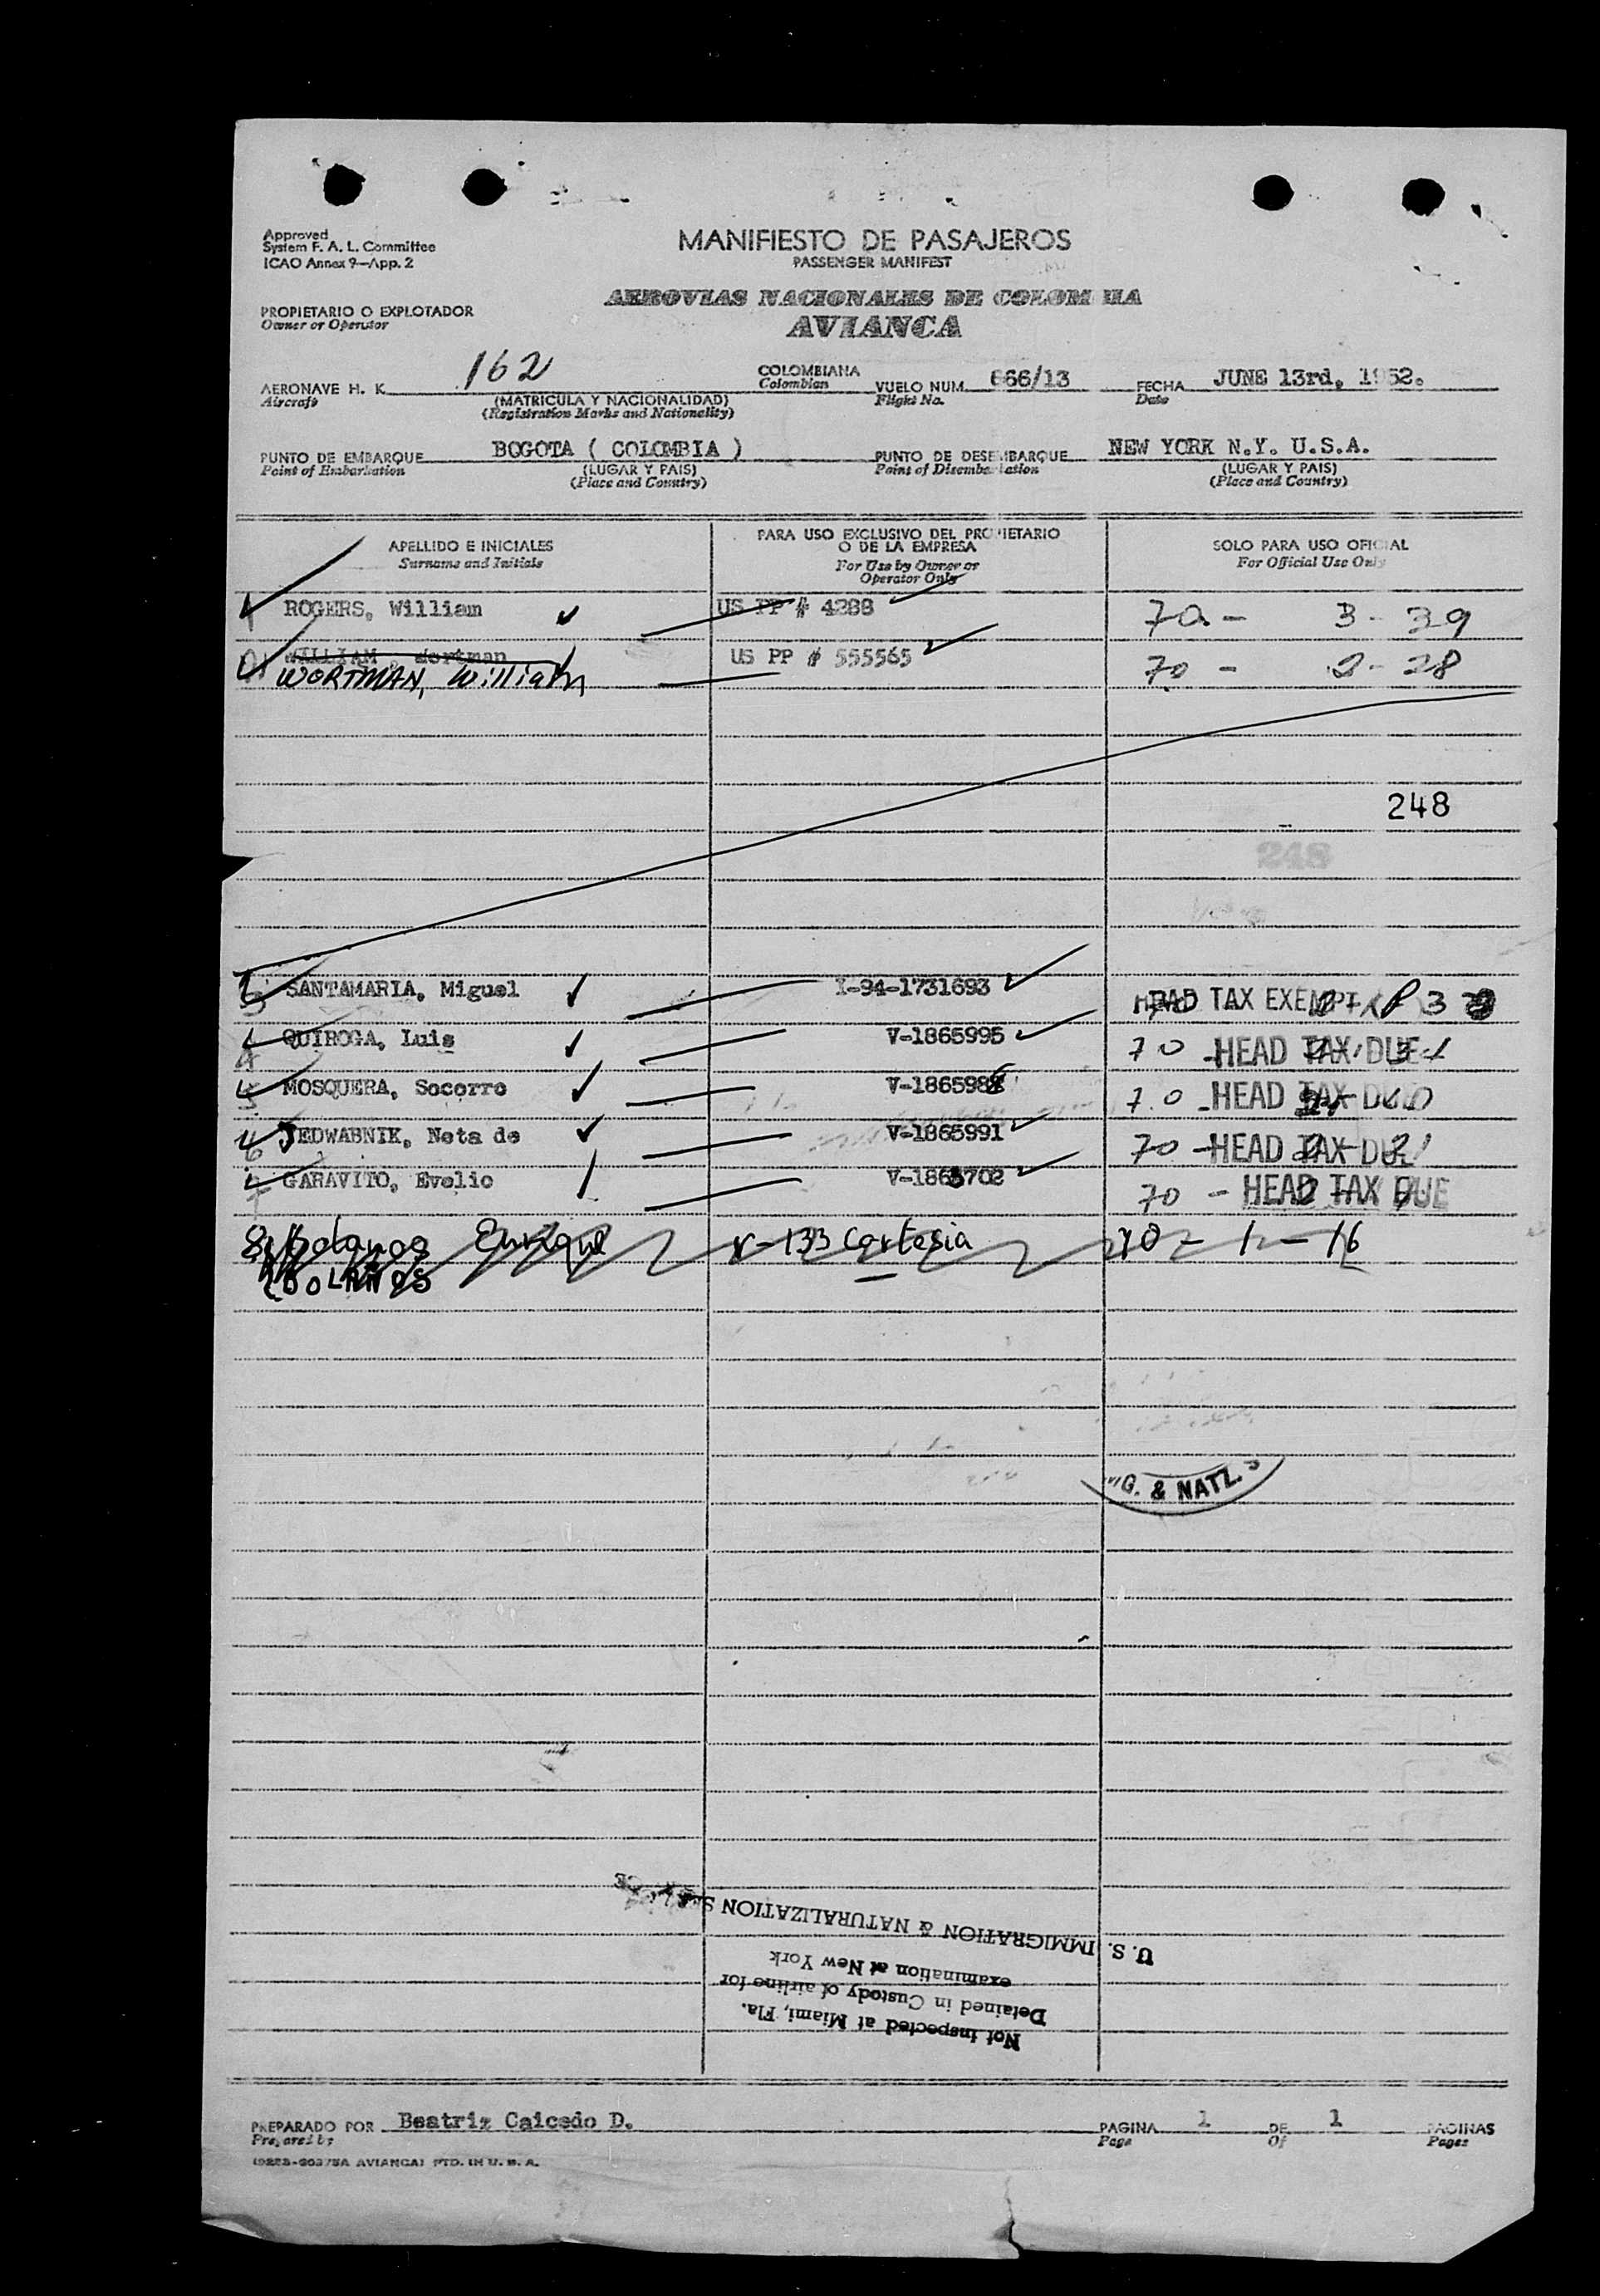 Approved
System F. A. L. Committee
ICAO Annex 9—App. 2
MANIFIESTO DE PASAJEROS
PASSENGER MANIFEST
AEROVIAS NACIONALES DE COLOMBIA
AVIANCA
PROPIETARIO O EXPLOTADOR
Owner or Operator
AERONAVE H. K. 162 COLOMBIANA VUELO NUM. 666/13 FECHA JUNE 13rd, 1952.
Aircraft (MATRICULA Y NACIONALIDAD) Colombian Flight No. Date
(Registration Marks and Nationality)
PUNTO DE EMBARQUE BOGOTA ( COLOMBIA ) PUNTO DE DESEMBARQUE NEW YORK N.Y. U.S.A.
Point of Embarkation (LUGAR Y PAIS) Point of Disembarkation (LUGAR Y PAIS)
(Place and Country) (Place and Country)
APELLIDO E INICIALES PARA USO EXCLUSIVO DEL PROPIETARIO SOLO PARA USO OFICIAL
Surname and Initials O DE LA EMPRESA For Official Use Only
For Use by Owner or
Operator Only
1 ROGERS, William US PP # 4288 70 - 3 - 39
WILLIAM, Wortman US PP # 555565 70 - 2 - 28
WORTMAN, William
248
248
3 SANTAMARIA, Miguel I-94-1731693 HEAD TAX EXEMPT
4 QUIROGA, Luis V-1865995 70 - HEAD TAX DUE
5 MOSQUERA, Socorro V-186598 70 - HEAD TAX DUE
6 JEDWABNIK, Neta de V-1865991 70 - HEAD TAX DUE
7 GARAVITO, Evelio V-1863702 70 - HEAD TAX DUE
8 Bolanos Enrique V-133 Cortesia 70 - 1 - 16
BOLAÑOS
G. & NATZ. S
U. S. IMMIGRATION & NATURALIZATION
examination at New York
Detained in Custody of airline for
Not inspected at Miami, Fla.
PREPARADO POR Beatriz Caicedo D. PAGINA 1 DE 1 PAGINAS
Prepared by Page Of Pages
AVIANCA) PTD. IN U. S. A.